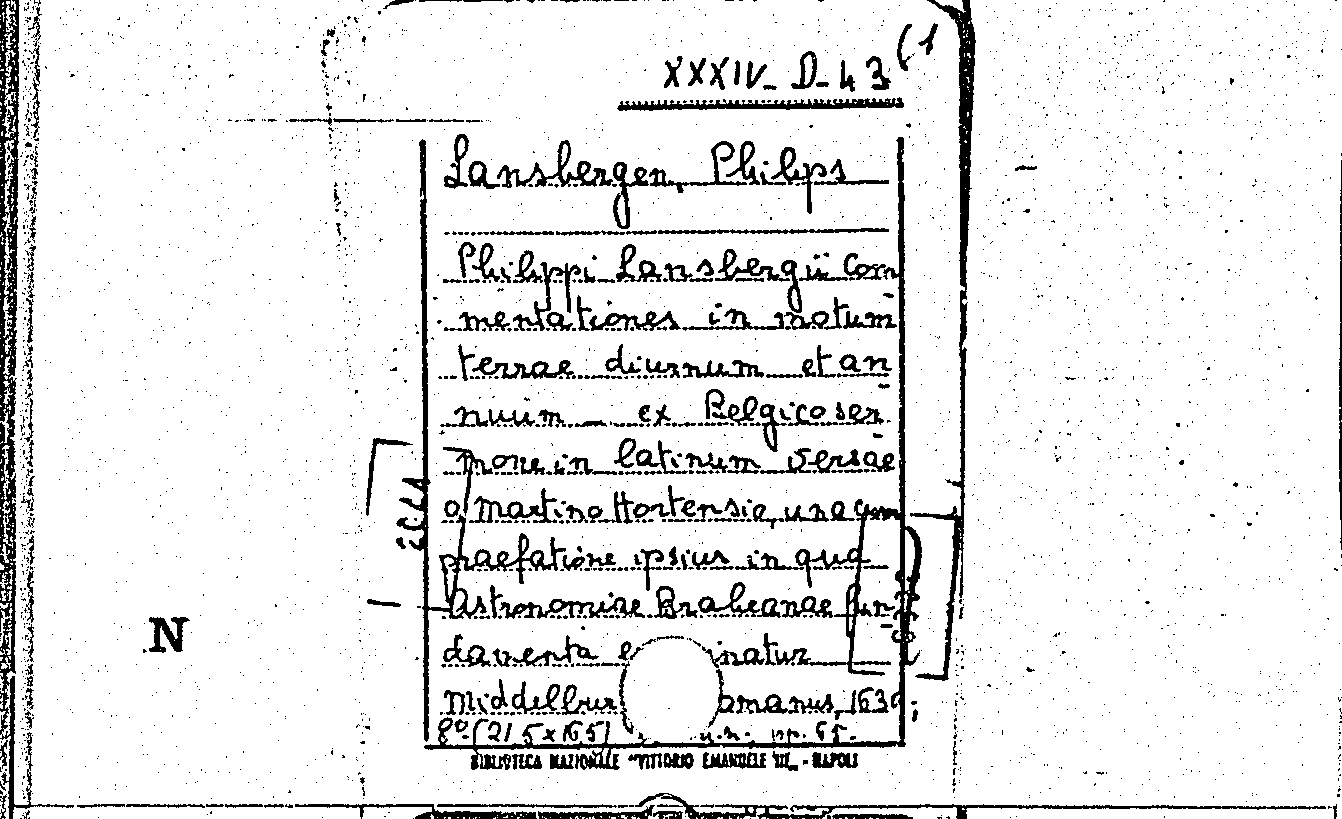 XXXIV-D-43 (1
Lansbergen, Philips
Philippi Lansbergii Com
mentationes in motum
terrae diurnum et an
nuum _ ex Belgico ser
mone in latinum versae
a Martino Hortensio, una cum
praefatione ipsius in qua
Astronomiae Braheanae fun
damenta
Middelbur 1630;
8° (21,5x16,5) pp. 65.
BIBLIOTECA NAZIONALE "VITTORIO EMANUELE III„ - NAPOLI
N